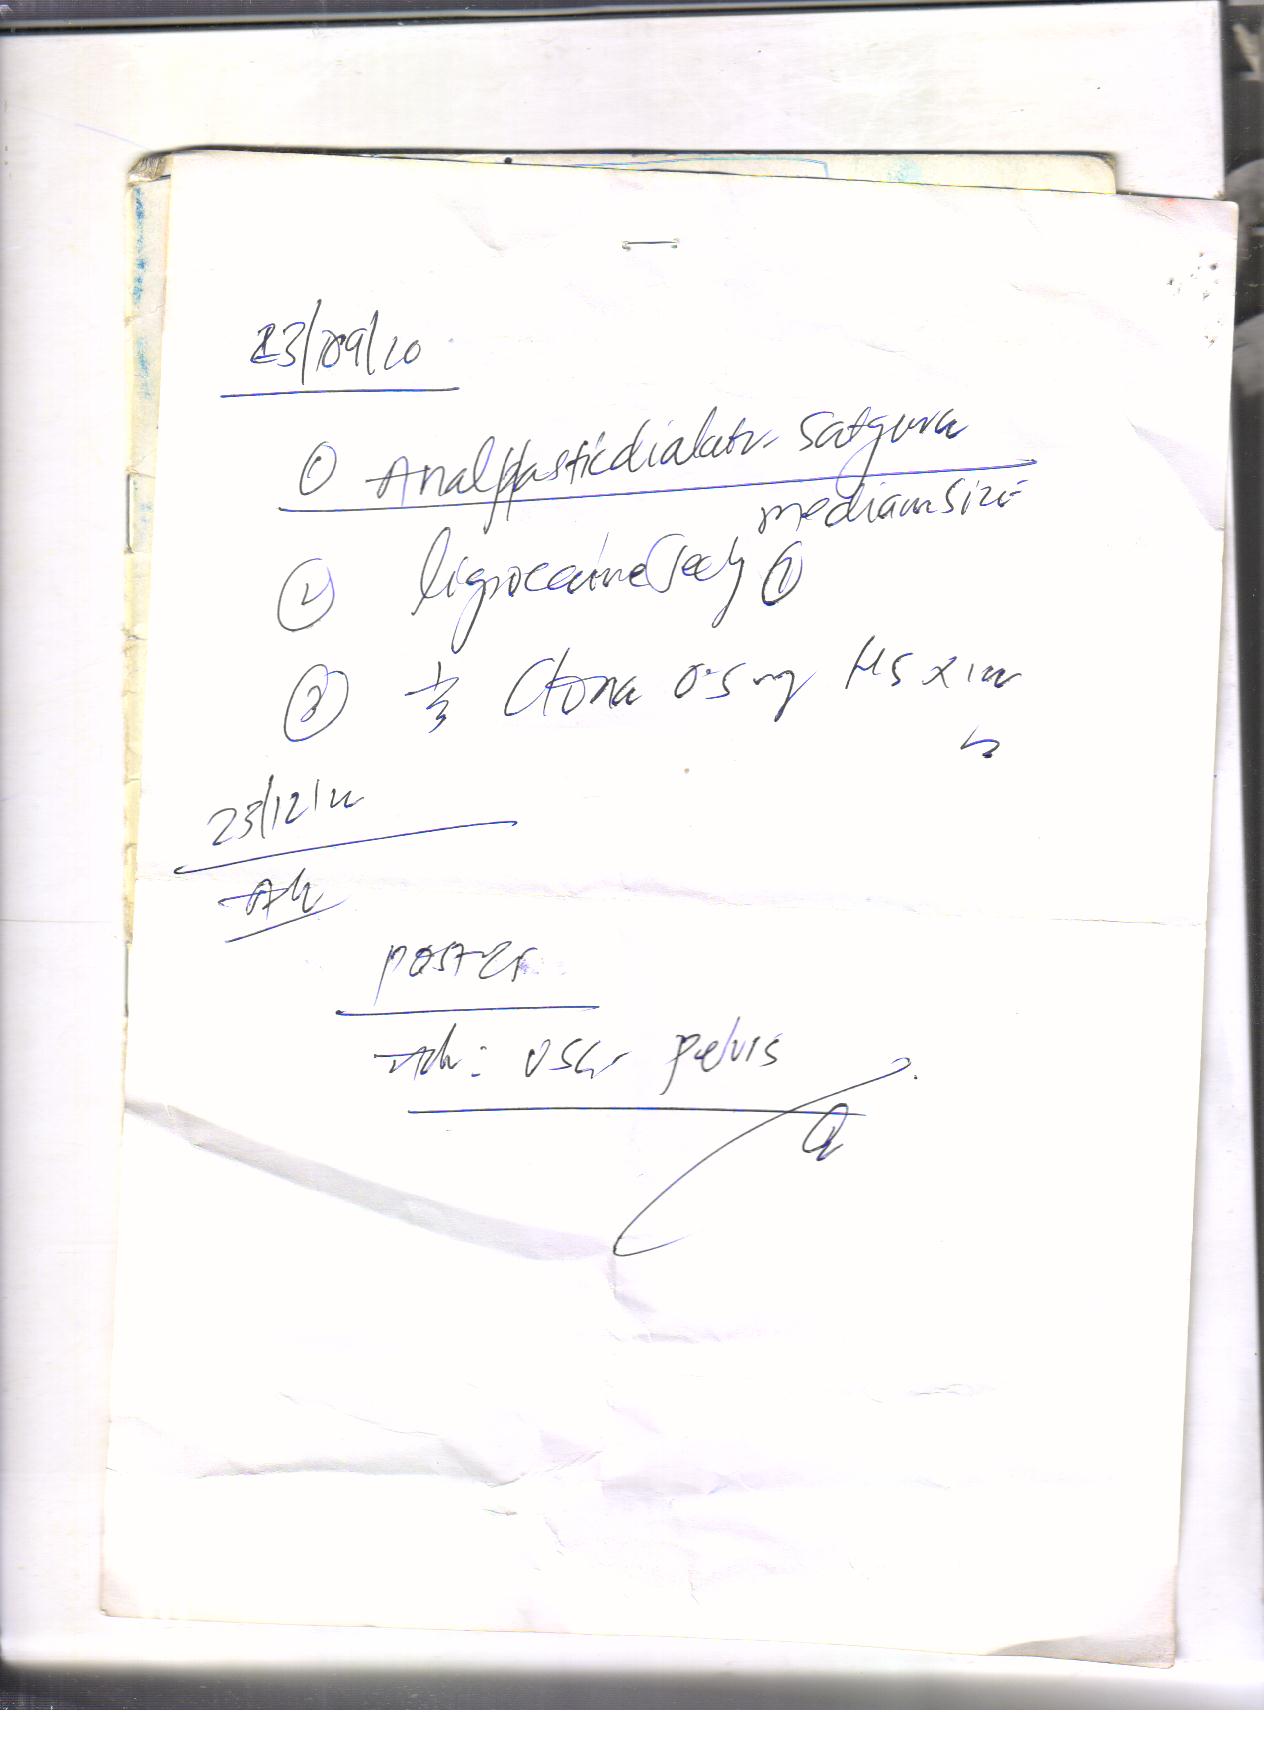 23/09/20
① Anal plastic dialator Satguru
median size
② lignocaine Jelly ①
③ Clona 0.5 mg HS x
23/12/20
Adv
Adv: USG pelvis